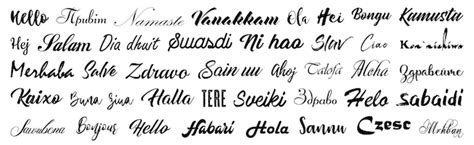 Hello Привіт Namaste Vanakkam Ola Hei Bongu Kamusta
Hej Salam Dia dhuit Swasdi Ni hao Slav Ciao
Merhaba Salve Zdravo Sain uu Ahoj Talofa Aloha Здравейте
Kaixo Buna ziua Halla TERE Sveiki Здраво Helo Sabaidi
Sawubona Bonjour Hello Habari Hola Sannu Czesc Mrhban